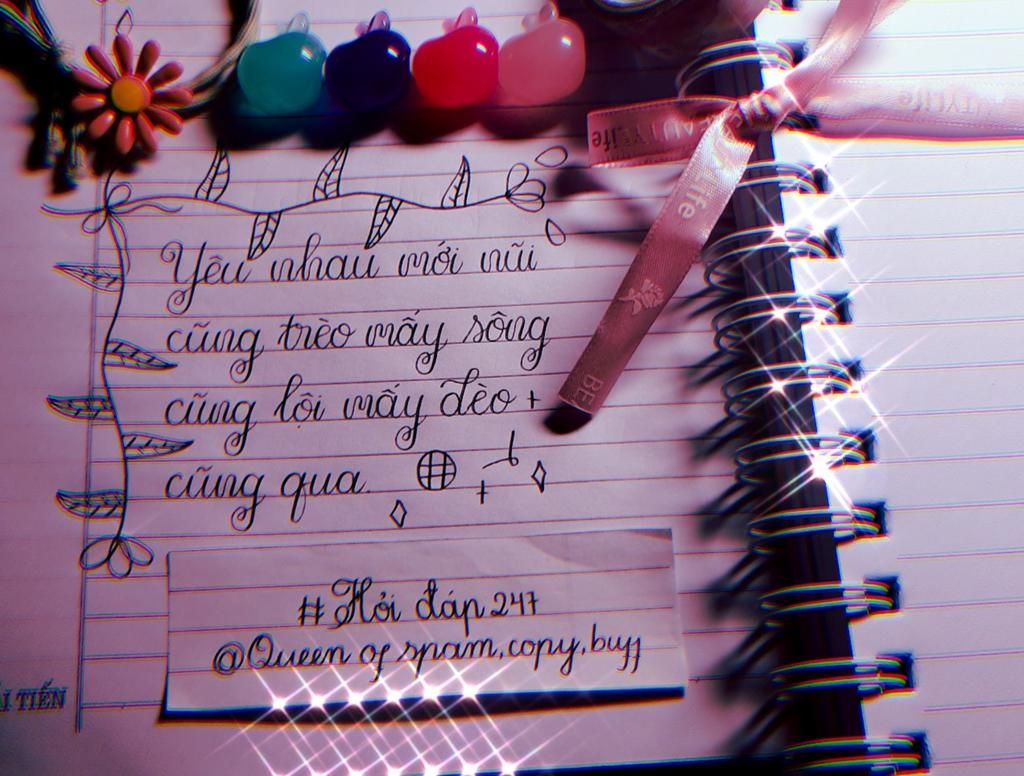 BEAUTYLife
Life
Life
BE
Yêu nhau mới núi
cũng trèo mấy sông
cũng lội mấy đèo +
cũng qua.
#Hỏi đáp 247
@Queen of spam, copy, buff
ẢI TIẾN